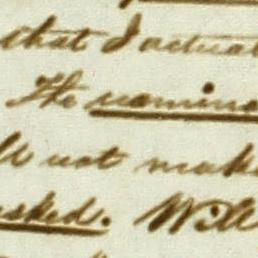 that I actual
The nomina
ll not mak
asked. Will